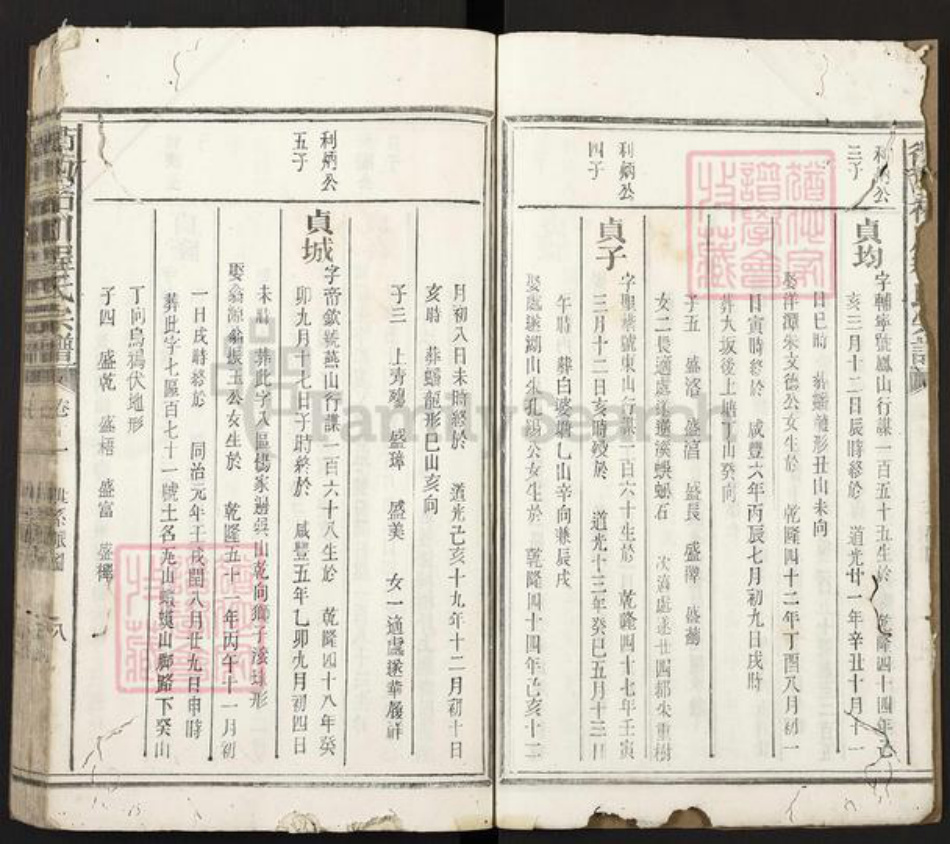 利炳公
三子
貞均
字輔寧號鳳山行謀一百五十五生於 乾隆四十四年己
亥三月十二日辰時終於 道光廿一年辛丑十月十一
日巳時 葬 形丑山未向
娶洋潭朱文德公女生於 乾隆四十二年丁酉八月初一
日寅時終於 咸豐六年丙辰七月初九日戌時
葬大坂後上塘丁山癸向
子五 盛洛 盛 盛長 盛 盛
女二長適處遂 溪蜈蚣石 次適處遂廿四都朱重樹
利炳公
四子
貞子
字聖 號東山行謀一百六十生於 乾隆四十七年壬寅
三月十二日亥時歿於 道光十三年癸巳五月十三日
午時 葬白婆塘乙山辛向兼辰戌
娶處遂湖山朱孔陽公女生於 乾隆四十四年己亥十二
月初八日未時終於 道光己亥十九年十二月初十日
亥時 葬蟠龍形巳山亥向
子三 上 殤 盛璋 盛美 女一適處遂華履祥
利炳公
五子
貞城
字帝歛號燕山行謀一百六十八生於 乾隆四十八年癸
卯九月十七日子時終於 咸豐五年乙卯九月初四日
未時 葬此字八區楊家 巽山乾向獅子滾球形
娶翁源翁振玉公女生於 乾隆五十一年丙午十一月初
一日戌時終於 同治元年壬戌閏八月廿九日申時
葬此字七區百七十一號土名 山 山腳路下癸山
丁向烏鴉伏地形
子四 盛乾 盛梧 盛富 盛樨
氏宗譜 卷十一 世系 圖 八